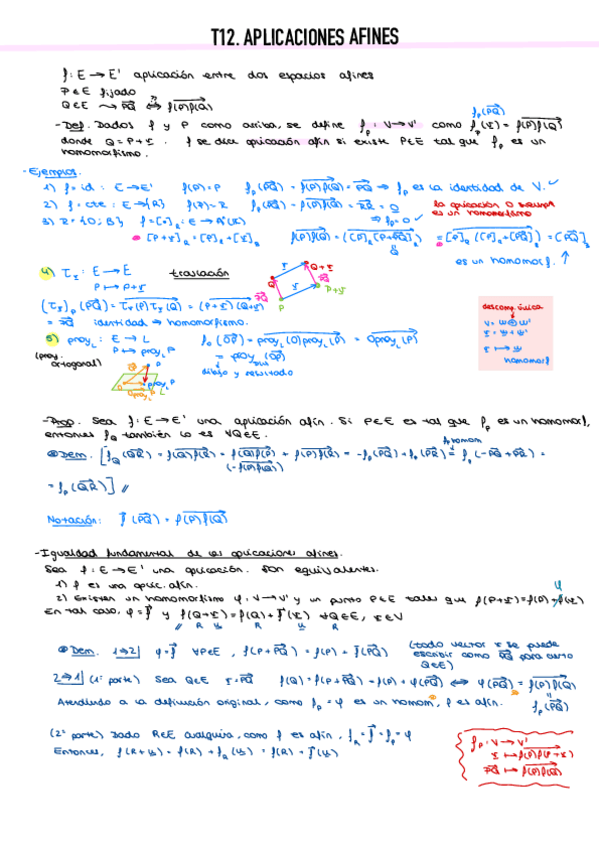 T12. APLICACIONES AFINES
f: E → E' aplicación entre dos espacios afines
P ∈ E fijado
Q ∈ E
- Def. Dados f y P como arriba, se define f_P : V → V' como f_P(v) = f(P)f(Q)
donde Q = P + v. f se dice aplicación afín si existe P ∈ E tal que f_P es un
homomorfismo.
- Ejemplos.
1) f = id : E → E' f(P) = P f_P(PQ) = f(P)f(Q) = PQ ⇒ f_P es la identidad de V. ✓
2) f = cte : E → {R} f_P(PQ) = f(P)f(Q) = RR = 0 ⇒ f_P = 0 ✓
la aplicación 0 siempre
es un homomorfismo
es un homomorf. ↑
4) τ_v : E → E traslación
P ↦ P + v
(τ_v)_P(PQ) = τ_v(P)τ_v(Q) = (P+v)(Q+v)
= PQ identidad → homomorfismo.
descomp. única
homomorf
5) proy_L : E → L
P ↦ proy_L P
(proy. ortogonal)
= proy (OP)
dibujo y resultado
- Prop. Sea f: E → E' una aplicación afín. Si P ∈ E es tal que f_P es un homomorf,
entonces f_Q también lo es ∀Q ∈ E.
Dem. [f_Q(QR) = f(Q)f(R) = f(Q)f(P) + f(P)f(R) = -f_P(PQ) + f_P(PR) = f_P(-PQ + PR) =
(-f(P)f(Q))
= f_P(QR)] //
Notación: f(PQ) = f(P)f(Q)
- Igualdad fundamental de las aplicaciones afines.
Sea f: E → E' una aplicación. Son equivalentes.
1) f es una aplic. afín.
2) Existen un homomorfismo φ: V → V' y un punto P ∈ E tales que f(P+v) = f(P) + φ(v)
En tal caso, φ = f y f(Q+v) = f(Q) + f(v) ∀Q ∈ E, v ∈ V
Dem. 1⇒2] φ = f ∀P ∈ E, f(P + PQ) = f(P) + f(PQ)
(todo vector v se puede
escribir como PQ para cierto
Q ∈ E)
2⇒1] (1ª parte) Sea Q ∈ E v = PQ f(Q) = f(P + PQ) = f(P) + φ(PQ) ⇔ φ(PQ) = f(P)f(Q)
f_P(PQ)
Atendiendo a la definición original, como f_P = φ es un homom, f es afín.
(2ª parte) Dado R ∈ E cualquiera, como f es afín, f_R = f = f_P = φ
Entonces, f(R+v) = f(R) + f_R(v) = f(R) + f(v)
f_P : V → V'
v ↦ f(P)f(P+v)
PQ ↦ f(P)f(Q)